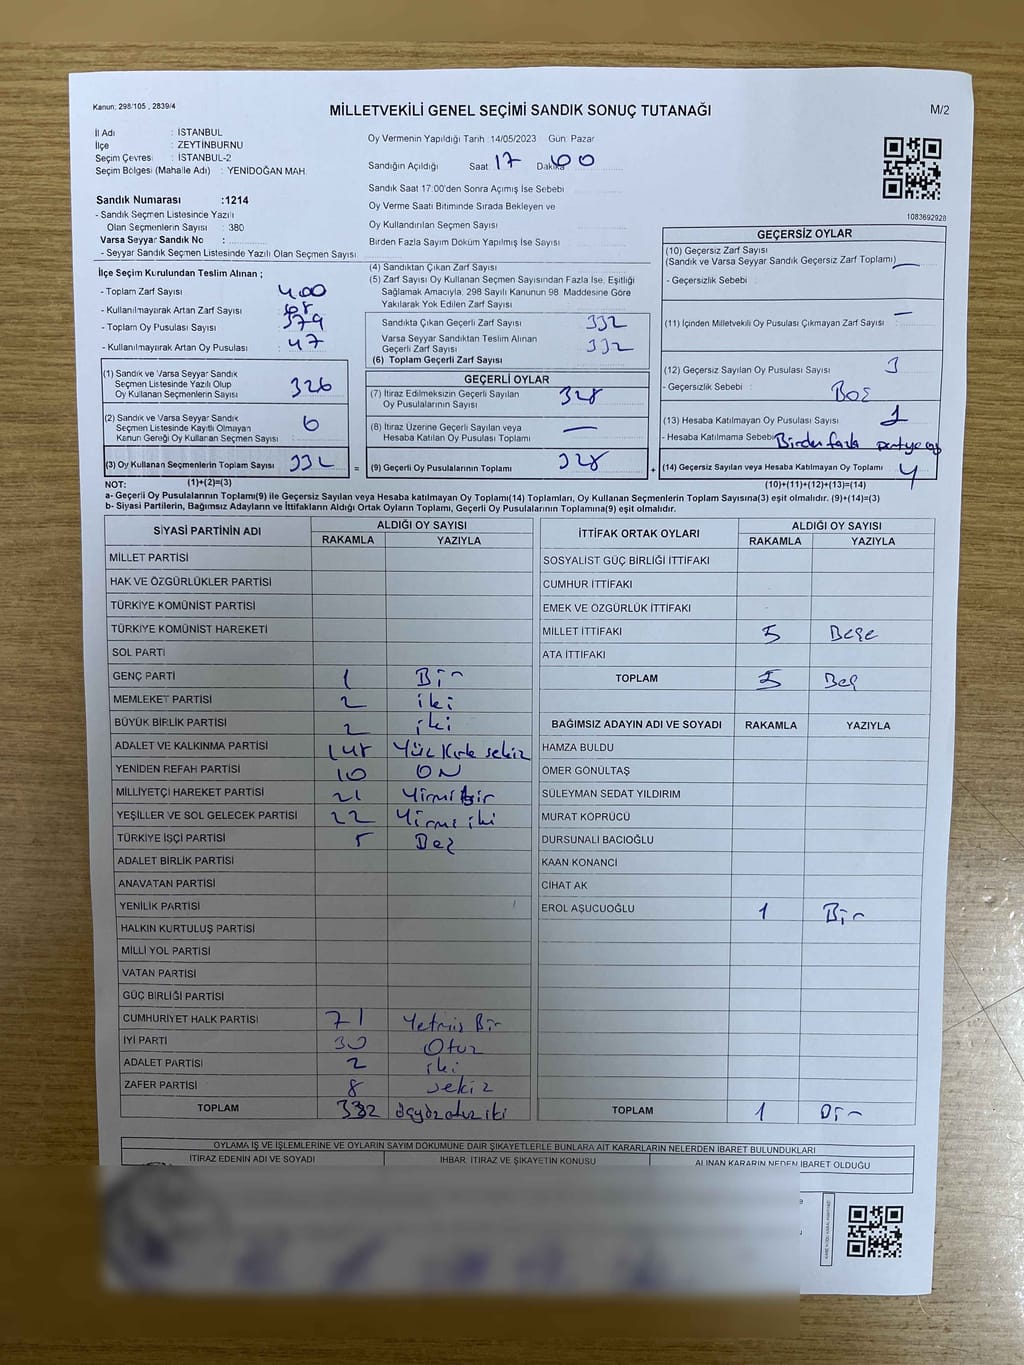 Kanun: 298/105 , 2839/4
MİLLETVEKİLİ GENEL SEÇİMİ SANDIK SONUÇ TUTANAĞI
M/2
İl Adı : İSTANBUL
İlçe : ZEYTİNBURNU
Seçim Çevresi : İSTANBUL-2
Seçim Bölgesi (Mahalle Adı) : YENİDOĞAN MAH.
Oy Vermenin Yapıldığı Tarih : 14/05/2023 Gün: Pazar
Sandığın Açıldığı Saat 17 Dakika 00
Sandık Saat 17:00'den Sonra Açımış İse Sebebi
Oy Verme Saati Bitiminde Sırada Bekleyen ve
Oy Kullandırılan Seçmen Sayısı
Birden Fazla Sayım Döküm Yapılmış İse Sayısı
1083692928
Sandık Numarası :1214
- Sandık Seçmen Listesinde Yazılı
Olan Seçmenlerin Sayısı : 380
Varsa Seyyar Sandık No :
- Seyyar Sandık Seçmen Listesinde Yazılı Olan Seçmen Sayısı:
İlçe Seçim Kurulundan Teslim Alınan ;
- Toplam Zarf Sayısı : 400
- Kullanılmayarak Artan Zarf Sayısı : 68
- Toplam Oy Pusulası Sayısı : 379
- Kullanılmayarak Artan Oy Pusulası : 47
(1) Sandık ve Varsa Seyyar Sandık
Seçmen Listesinde Yazılı Olup
Oy Kullanan Seçmenlerin Sayısı 326
(2) Sandık ve Varsa Seyyar Sandık
Seçmen Listesinde Kayıtlı Olmayan
Kanun Gereği Oy Kullanan Seçmen Sayısı : 6
(3) Oy Kullanan Seçmenlerin Toplam Sayısı 332
(1)+(2)=(3)
(4) Sandıktan Çıkan Zarf Sayısı
(5) Zarf Sayısı Oy Kullanan Seçmen Sayısından Fazla İse, Eşitliği
Sağlamak Amacıyla, 298 Sayılı Kanunun 98. Maddesine Göre
Yakılarak Yok Edilen Zarf Sayısı
Sandıkta Çıkan Geçerli Zarf Sayısı 332
Varsa Seyyar Sandıktan Teslim Alınan
Geçerli Zarf Sayısı 332
(6) Toplam Geçerli Zarf Sayısı
GEÇERLİ OYLAR
(7) İtiraz Edilmeksizin Geçerli Sayılan
Oy Pusulalarının Sayısı 328
(8) İtiraz Üzerine Geçerli Sayılan veya
Hesaba Katılan Oy Pusulası Toplamı —
= (9) Geçerli Oy Pusulalarının Toplamı 328 +
GEÇERSİZ OYLAR
(10) Geçersiz Zarf Sayısı
(Sandık ve Varsa Seyyar Sandık Geçersiz Zarf Toplamı) —
- Geçersizlik Sebebi :
(11) İçinden Milletvekili Oy Pusulası Çıkmayan Zarf Sayısı : —
(12) Geçersiz Sayılan Oy Pusulası Sayısı : 3
- Geçersizlik Sebebi : Boş
(13) Hesaba Katılmayan Oy Pusulası Sayısı : 1
- Hesaba Katılmama Sebebi Birden fazla
(14) Geçersiz Sayılan veya Hesaba Katılmayan Oy Toplamı 4
(10)+(11)+(12)+(13)=(14)
NOT:
a- Geçerli Oy Pusulalarının Toplamı(9) ile Geçersiz Sayılan veya Hesaba katılmayan Oy Toplamı(14) Toplamları, Oy Kullanan Seçmenlerin Toplam Sayısına(3) eşit olmalıdır. (9)+(14)=(3)
b- Siyasi Partilerin, Bağımsız Adayların ve İttifakların Aldığı Ortak Oyların Toplamı, Geçerli Oy Pusulalarının Toplamına(9) eşit olmalıdır.
SİYASİ PARTİNİN ADI ALDIĞI OY SAYISI
RAKAMLA YAZIYLA
MİLLET PARTİSİ
HAK VE ÖZGÜRLÜKLER PARTİSİ
TÜRKİYE KOMÜNİST PARTİSİ
TÜRKİYE KOMÜNİST HAREKETİ
SOL PARTİ
GENÇ PARTİ 1 Bir
MEMLEKET PARTİSİ 2 iki
BÜYÜK BİRLİK PARTİSİ 2 iki
ADALET VE KALKINMA PARTİSİ 148 Yüz Kırk sekiz
YENİDEN REFAH PARTİSİ 10 ON
MİLLİYETÇİ HAREKET PARTİSİ 21 Yirmi bir
YEŞİLLER VE SOL GELECEK PARTİSİ 22 Yirmi iki
TÜRKİYE İŞÇİ PARTİSİ 5 Beş
ADALET BİRLİK PARTİSİ
ANAVATAN PARTİSİ
YENİLİK PARTİSİ
HALKIN KURTULUŞ PARTİSİ
MİLLİ YOL PARTİSİ
VATAN PARTİSİ
GÜÇ BİRLİĞİ PARTİSİ
CUMHURİYET HALK PARTİSİ 71 Yetmiş Bir
İYİ PARTİ 30 Otuz
ADALET PARTİSİ 2 iki
ZAFER PARTİSİ 8 sekiz
TOPLAM 332 üçyüzotuziki
İTTİFAK ORTAK OYLARI ALDIĞI OY SAYISI
RAKAMLA YAZIYLA
SOSYALİST GÜÇ BİRLİĞİ İTTİFAKI
CUMHUR İTTİFAKI
EMEK VE ÖZGÜRLÜK İTTİFAKI
MİLLET İTTİFAKI 5 Beş
ATA İTTİFAKI
TOPLAM 5 Beş
BAĞIMSIZ ADAYIN ADI VE SOYADI RAKAMLA YAZIYLA
HAMZA BULDU
ÖMER GÖNÜLTAŞ
SÜLEYMAN SEDAT YILDIRIM
MURAT KÖPRÜCÜ
DURSUNALİ BACIOĞLU
KAAN KONANCİ
CİHAT AK
EROL AŞUCUOĞLU 1 Bir
TOPLAM 1 Bir
OYLAMA İŞ VE İŞLEMLERİNE VE OYLARIN SAYIM DÖKÜMÜNE DAİR ŞİKAYETLERLE BUNLARA AİT KARARLARIN NELERDEN İBARET BULUNDUKLARI
İTİRAZ EDENİN ADI VE SOYADI İHBAR, İTİRAZ VE ŞİKAYETİN KONUSU ALINAN KARARIN NEDEN İBARET OLDUĞU